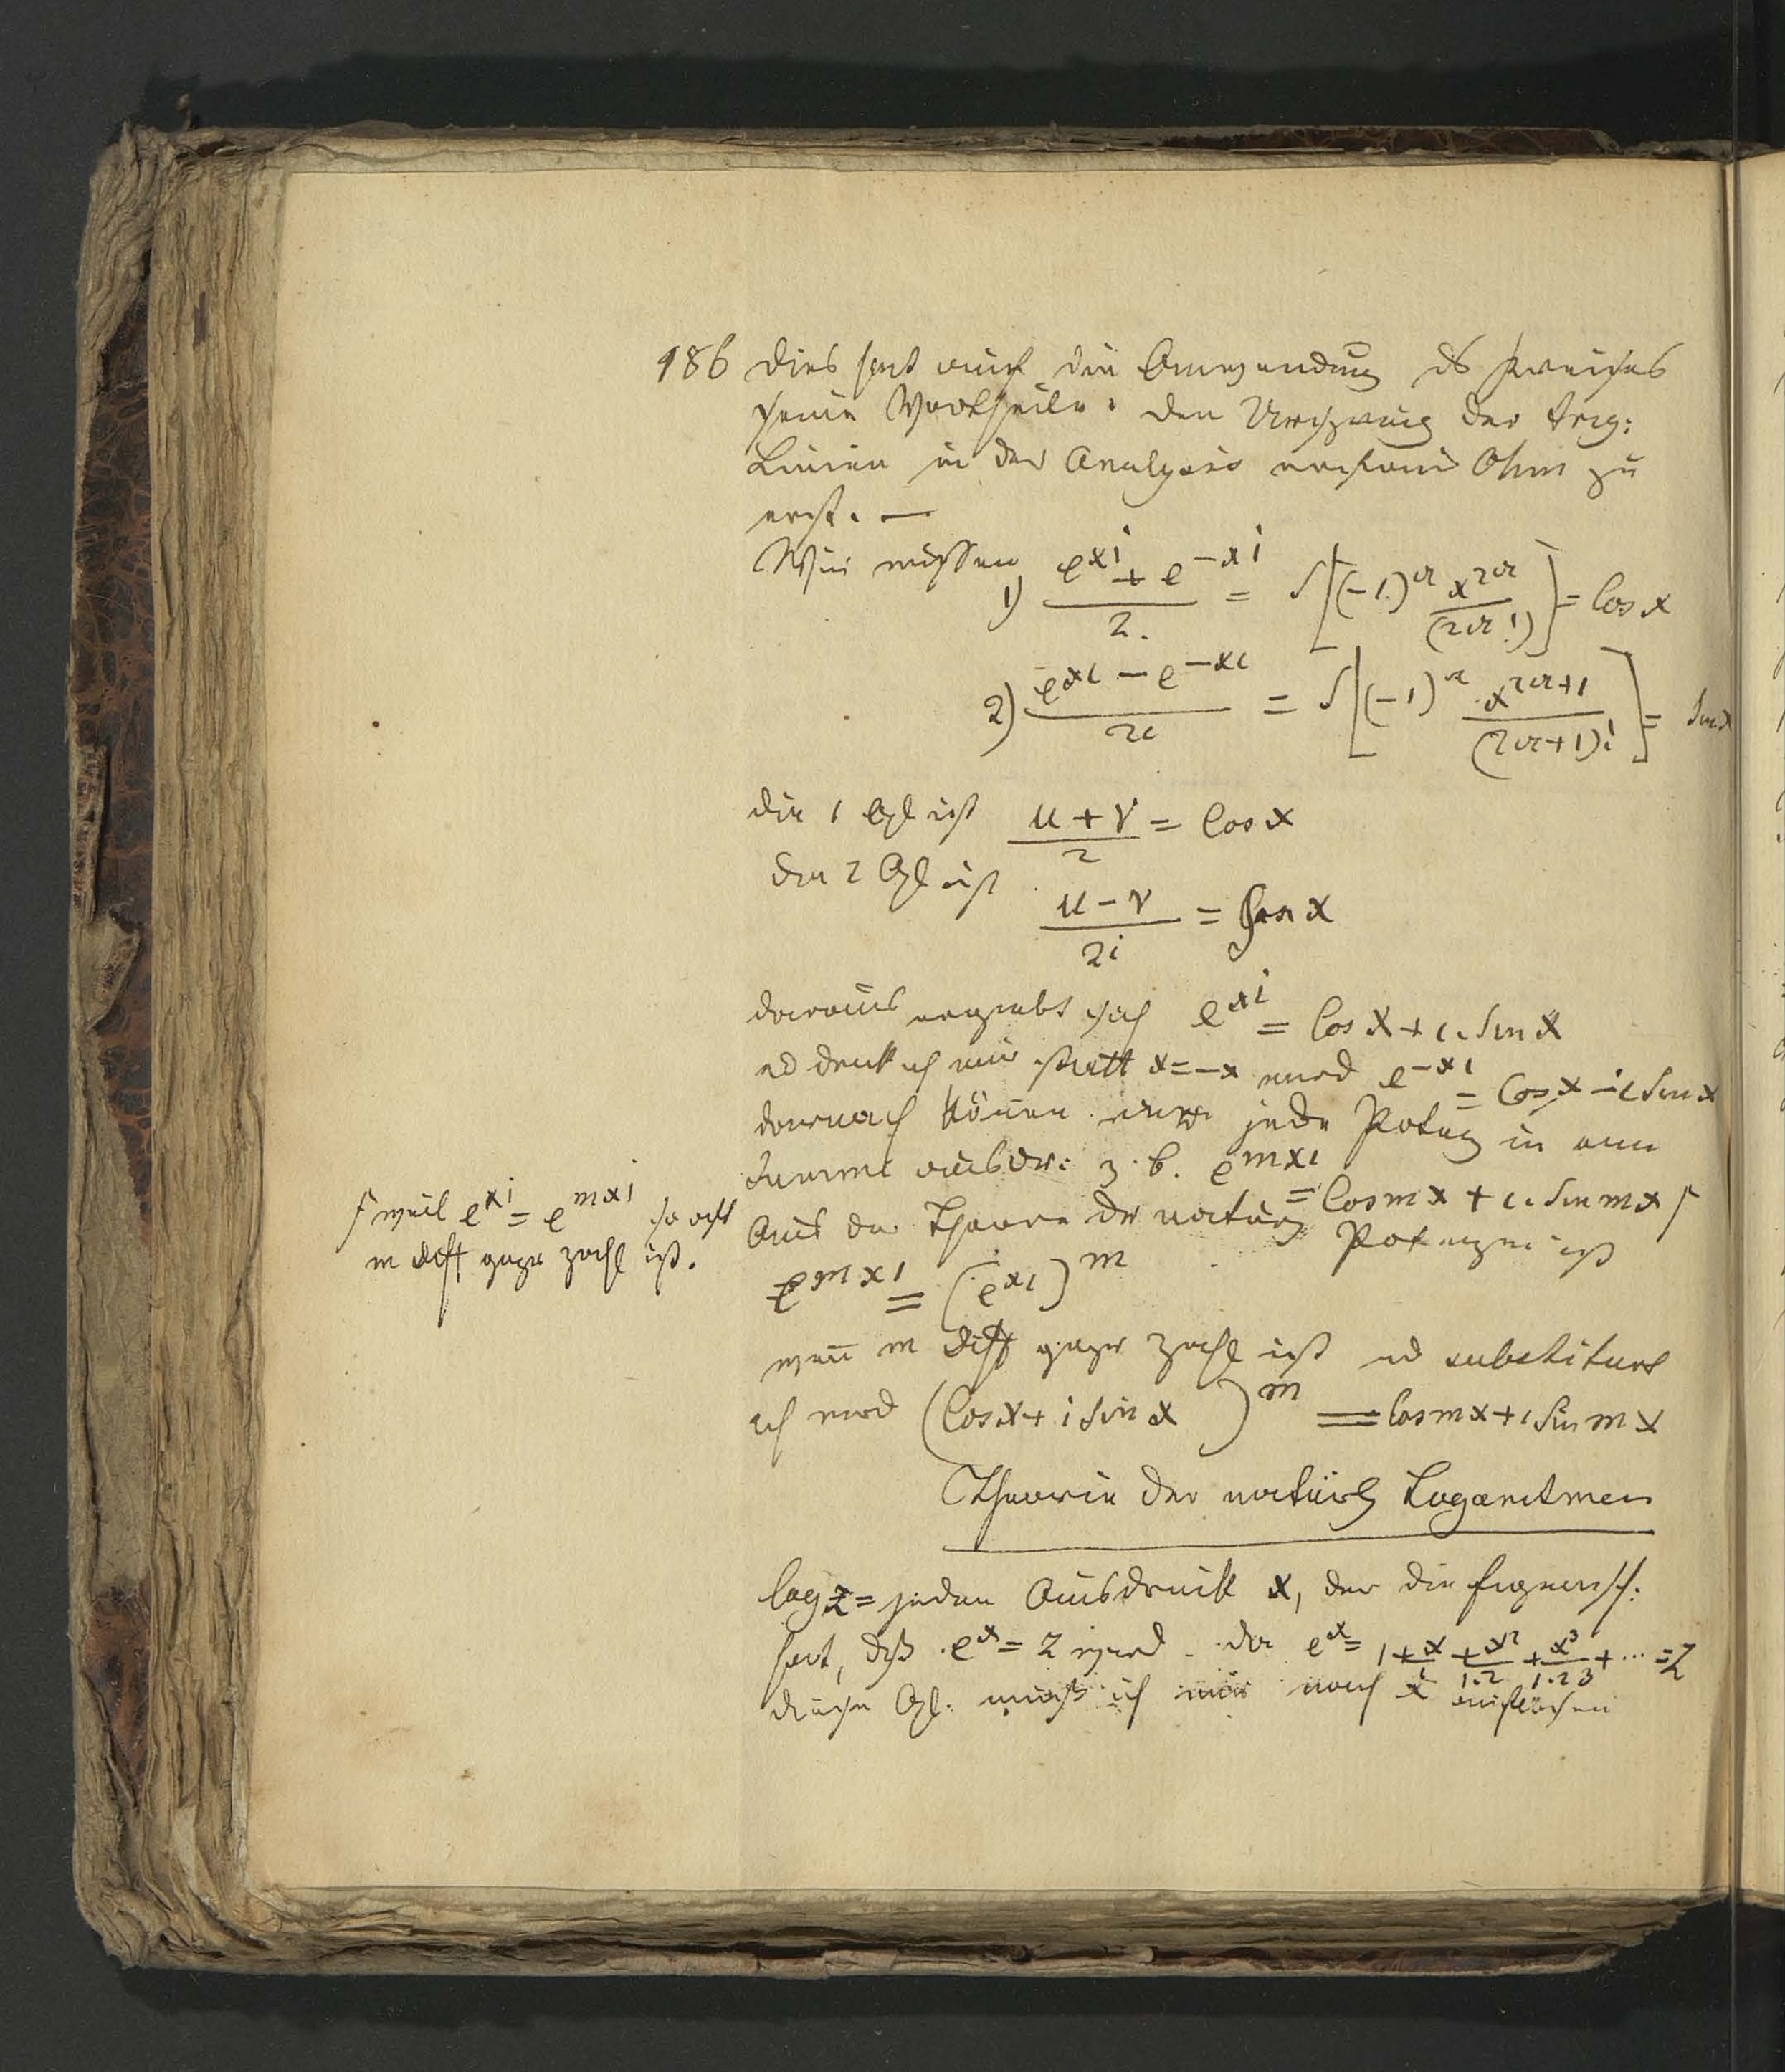 186 Dies hat auch die Anwendung ds Kreises
seine Vortheile. Den Ursprung der trig:
Linien in der Analysis erkannte Ohm zu
erst. —
Wir wissen
1) (e^{xi} + e^{-xi})/2. = S[(-1)^a x^{2a}/(2a!)] = Cos x
2) (e^{xi} - e^{-xi})/2i = S[(-1)^a x^{2a+1}/(2a+1)!] = Sin x
die 1 Gl ist (u + v)/2 = Cos x
die 2 Gl ist (u - v)/2i = Sin x
daraus ergiebt sich e^{xi} = Cos x + i. Sin x
ud denk ich mir statt x = -x wird e^{-xi} = Cos x - i Sin x
darnach können wir jede Potenz in eine
Summe ausdr: z. b. e^{mxi} = Cos mx + i. Sin mx ſ
ſ weil e^{xi} = e^{mxi} so oft
m diff ganze Zahl ist.
Aus der Theorie der natürl Potenzen ist
e^{mxi} = (e^{xi})^m
wenn m diff ganze Zahl ist ud substituirt
ich wird (Cos x + i Sin x)^m = Cos mx + i Sin mx
Theorie der natürl Logaritmen
log z = jeden Ausdruck x, der die Eigensch:
hat, daß e^x = z wird. da e^x = 1 + x/1 + x^2/1.2 + x^3/1.2 3 + ... = z
diese Gl. muß ich nur nach x auflösen